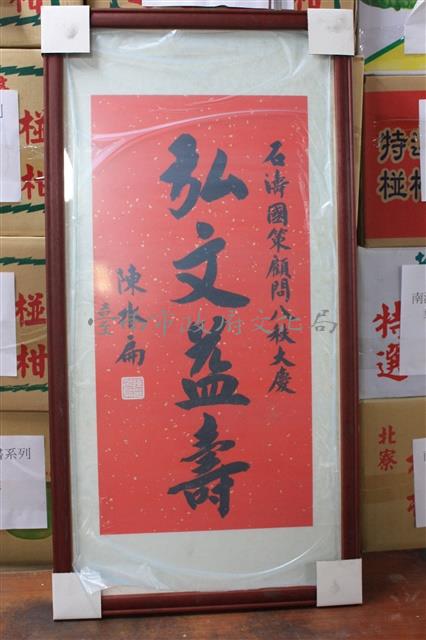 石濤國策顧問八秩大慶
弘文益壽
陳水扁
臺南市政府文化局
椪柑
椪柑
特選
椪柑
特選
北寮
系列